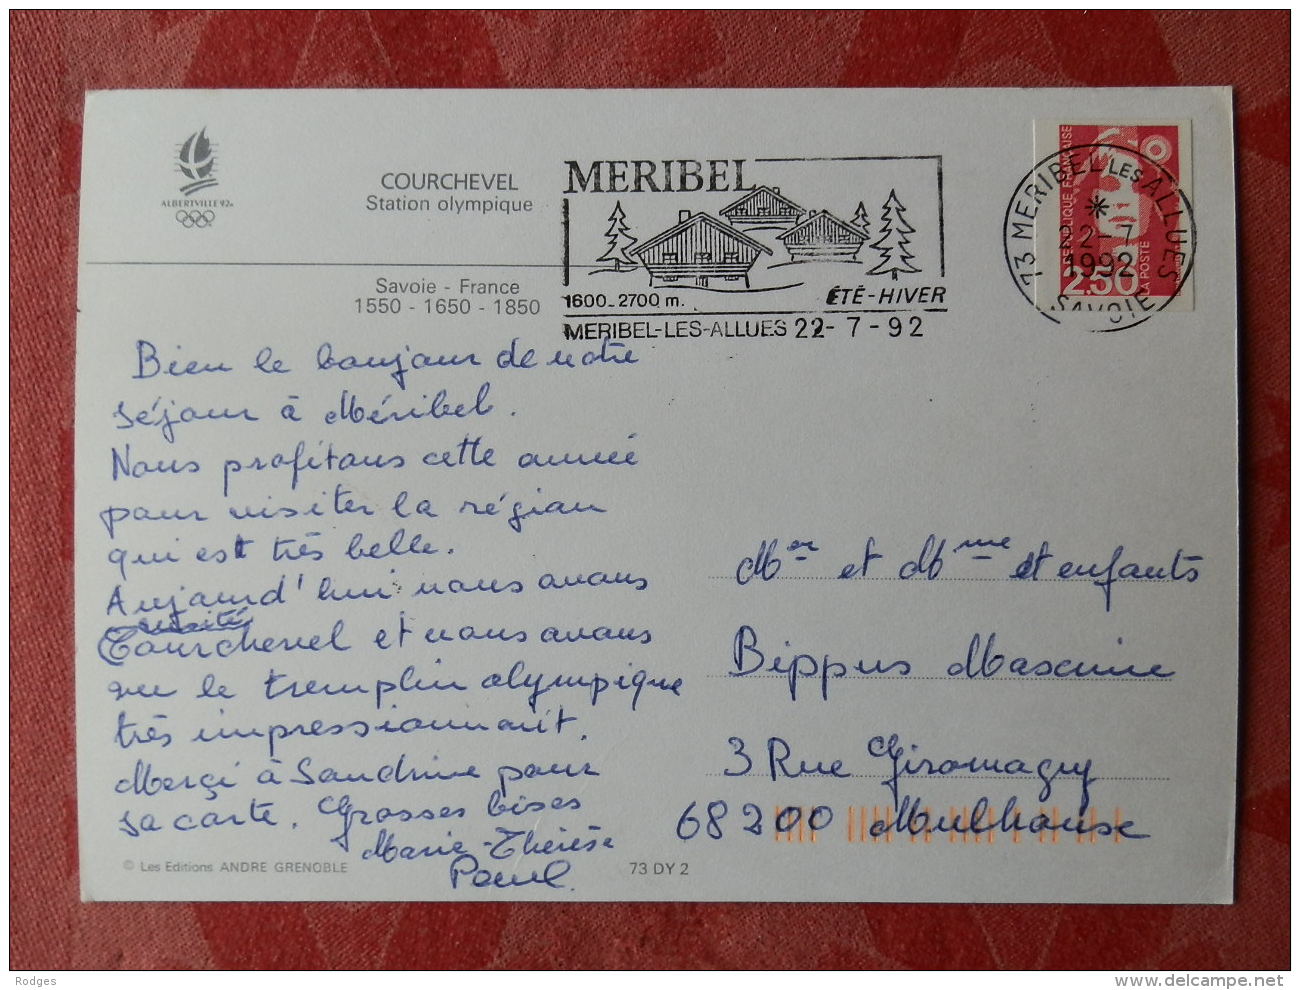 ALBERTVILLE 92
COURCHEVEL
Station olympique
Savoie - France
1550 - 1650 - 1850
MERIBEL
1600-2700 m.
ÉTÉ-HIVER
MERIBEL-LES-ALLUES 22-7-92
73 MERIBEL LES ALLUES
22-7
1992
SAVOIE
REPUBLIQUE FRANÇAISE
2.50
LA POSTE
Bien le bonjour de notre
séjour à Méribel.
Nous profitons cette année
pour visiter la région
qui est très belle.
Aujourd'hui nous avons
visité
Courchevel et nous avons
vu le tremplin olympique
très impressionnant.
Merçi à Sandrine pour
sa carte. Grosses bises
Marie-Thérèse
Paul.
Mer et Mme et enfants
Bippus Maxime
3 Rue Giromagny
68200 Mulhouse
© Les Editions ANDRE GRENOBLE
73 DY 2
Rodges
www.delcampe.net